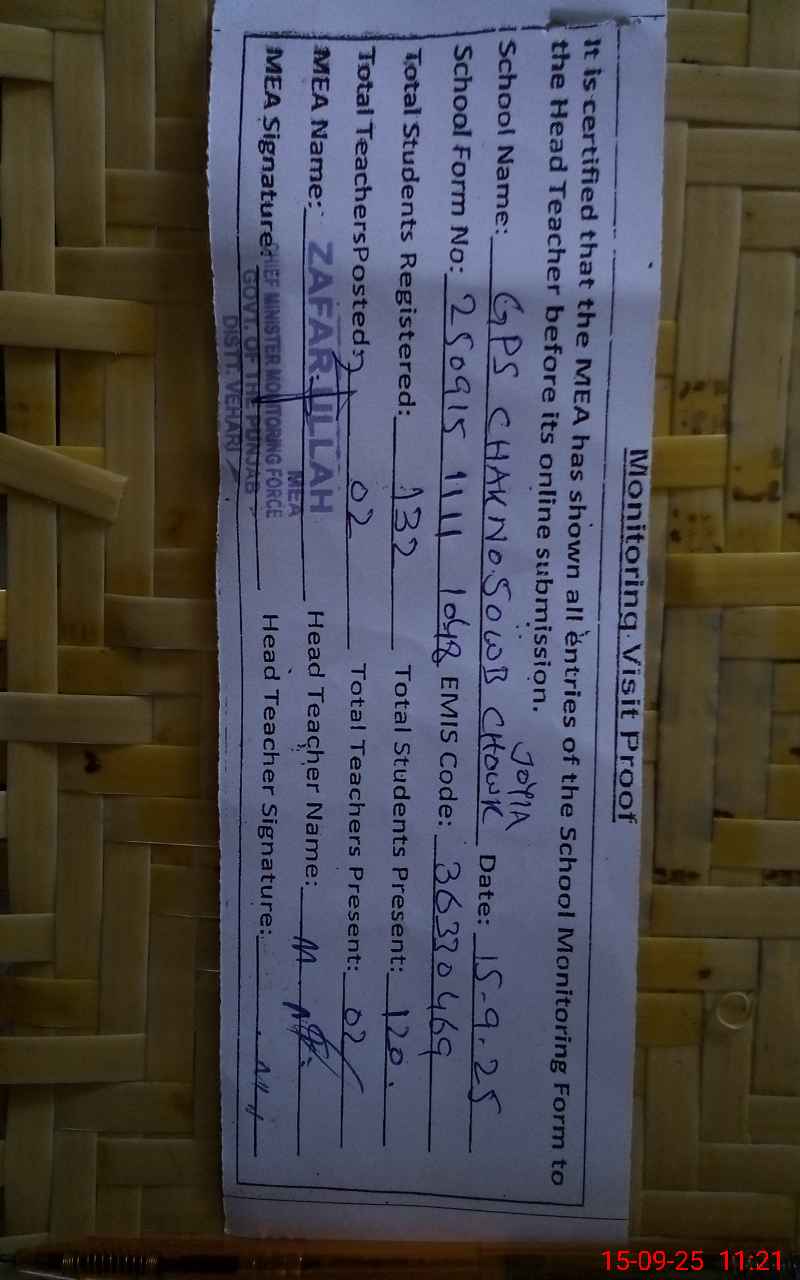 Monitoring Visit Proof
It is certified that the MEA has shown all entries of the School Monitoring Form to
the Head Teacher before its online submission.
School Name: GPS CHAK No. 50 WB CHOWK JOYIA Date: 15-9-25
School Form No: 250915 1111 1048 EMIS Code: 36320469
Total Students Registered: 132 Total Students Present: 120.
Total TeachersPosted: 02 Total Teachers Present: 02
MEA Name: ZAFAR ULLAH Head Teacher Name: M.
MEA
MEA Signature: Head Teacher Signature:
CHIEF MINISTER MONITORING FORCE
GOVT. OF THE PUNJAB
DISTT. VEHARI
15-09-25 11:21